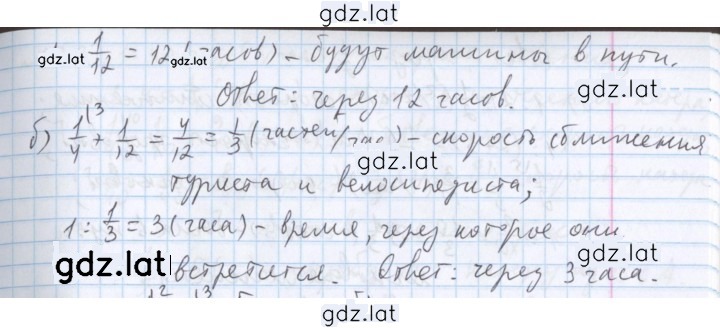 gdz.lat
1 : 1/12 = 12 (часов) – будут машины в пути.
gdz.lat gdz.lat
Ответ: через 12 часов.
б) 1/4 \3 + 1/12 = 4/12 = 1/3 (частей/час) – скорость сближения
gdz.lat
туриста и велосипедиста;
1 : 1/3 = 3 (часа) – время, через которое они
gdz.lat встретится. Ответ: через 3 часа.
gdz.lat
gdz.lat